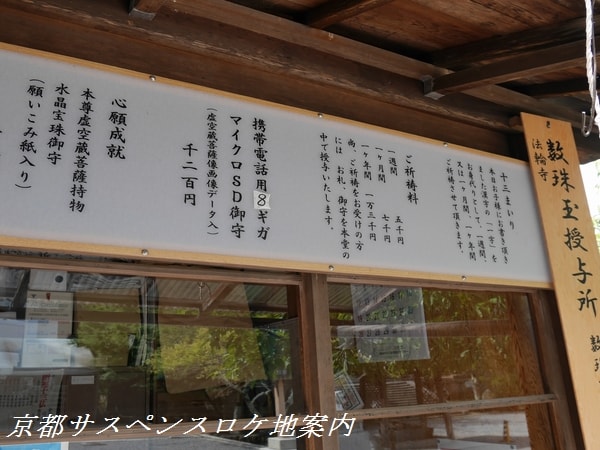 数珠玉授与所
法輪寺
数
十三まいり
本日お子様にお書き頂き
ました漢字の「一字」を
お身代りとして、一週間、
又は一ヶ月間、一ヶ年間
ご祈祷させて頂きます。
ご祈祷料
一週間　五千円
一ヶ月間　七千円
一ヶ年間　一万三千円
尚、ご祈祷をお受けの方
には、お札、御守を本堂の
中で授与いたします。
携帯電話用８ギガ
マイクロＳＤ御守
（虚空蔵菩薩像画像データ入）
千二百円
心願成就
本尊虚空蔵菩薩持物
水晶宝珠御守
（願いこみ紙入り）
京都サスペンスロケ地案内